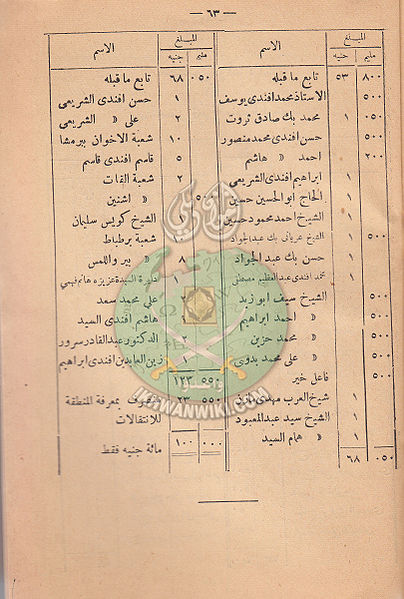 — ٦٣ —
المبلغ الاسم
مليم جنيه
٨٠٠ ٥٣ تابع ما قبله
٥٠٠ الاستاذ محمد افندى يوسف
٠٥٠ ١ محمد بك صادق ثروت
٥٠٠ حسن افندى محمد منصور
٢٠٠ احمد » هاشم
١ ابراهيم افندى الشريعى
١ الحاج ابو الحسين حسين
١ الشيخ احمد محمود حسين
٥٠٠ ١ الشيخ عريانى بك عبد الجواد
١ حسن بك عبد الجواد
١ محمد افندى عبد العظيم مصطفى
٥٠٠ الشيخ سيف ابو زيد
٥٠٠ » احمد ابراهيم
٥٠٠ » محمد حزين
٥٠٠ » على محمد بدوى
٥٠٠ فاعل خير
١ شيخ العرب مهدى
١ الشيخ سيد عبد المعبود
١ » همام السيد
٠٥٠ ٦٨
المبلغ الاسم
مليم جنيه
٠٥٠ ٦٨ تابع ما قبله
١ حسن افندى الشريعى
٢ على » الشريعى
١٠ شعبة الاخوان ببرمشا
٥ قاسم افندى قاسم
٢ شعبة القات
٥٠٠ » اشنين
١ الشيخ كويس سليمان
شعبة برطباط
٨ » ببر واللمس
١ السيدة عزيزه هانم فهمى
على محمد سعد
هاشم افندى السيد
٢ الدكتور عبد القادر سرور
١ زين العابدين افندى ابراهيم
٥٥٠ ١٢٣
٥٥٠ ٢٣ بمعرفة المنطقة
للانتقالات
٠٠٠ ١٠٠ مائة جنيه فقط
IKHWANWIKI.COM